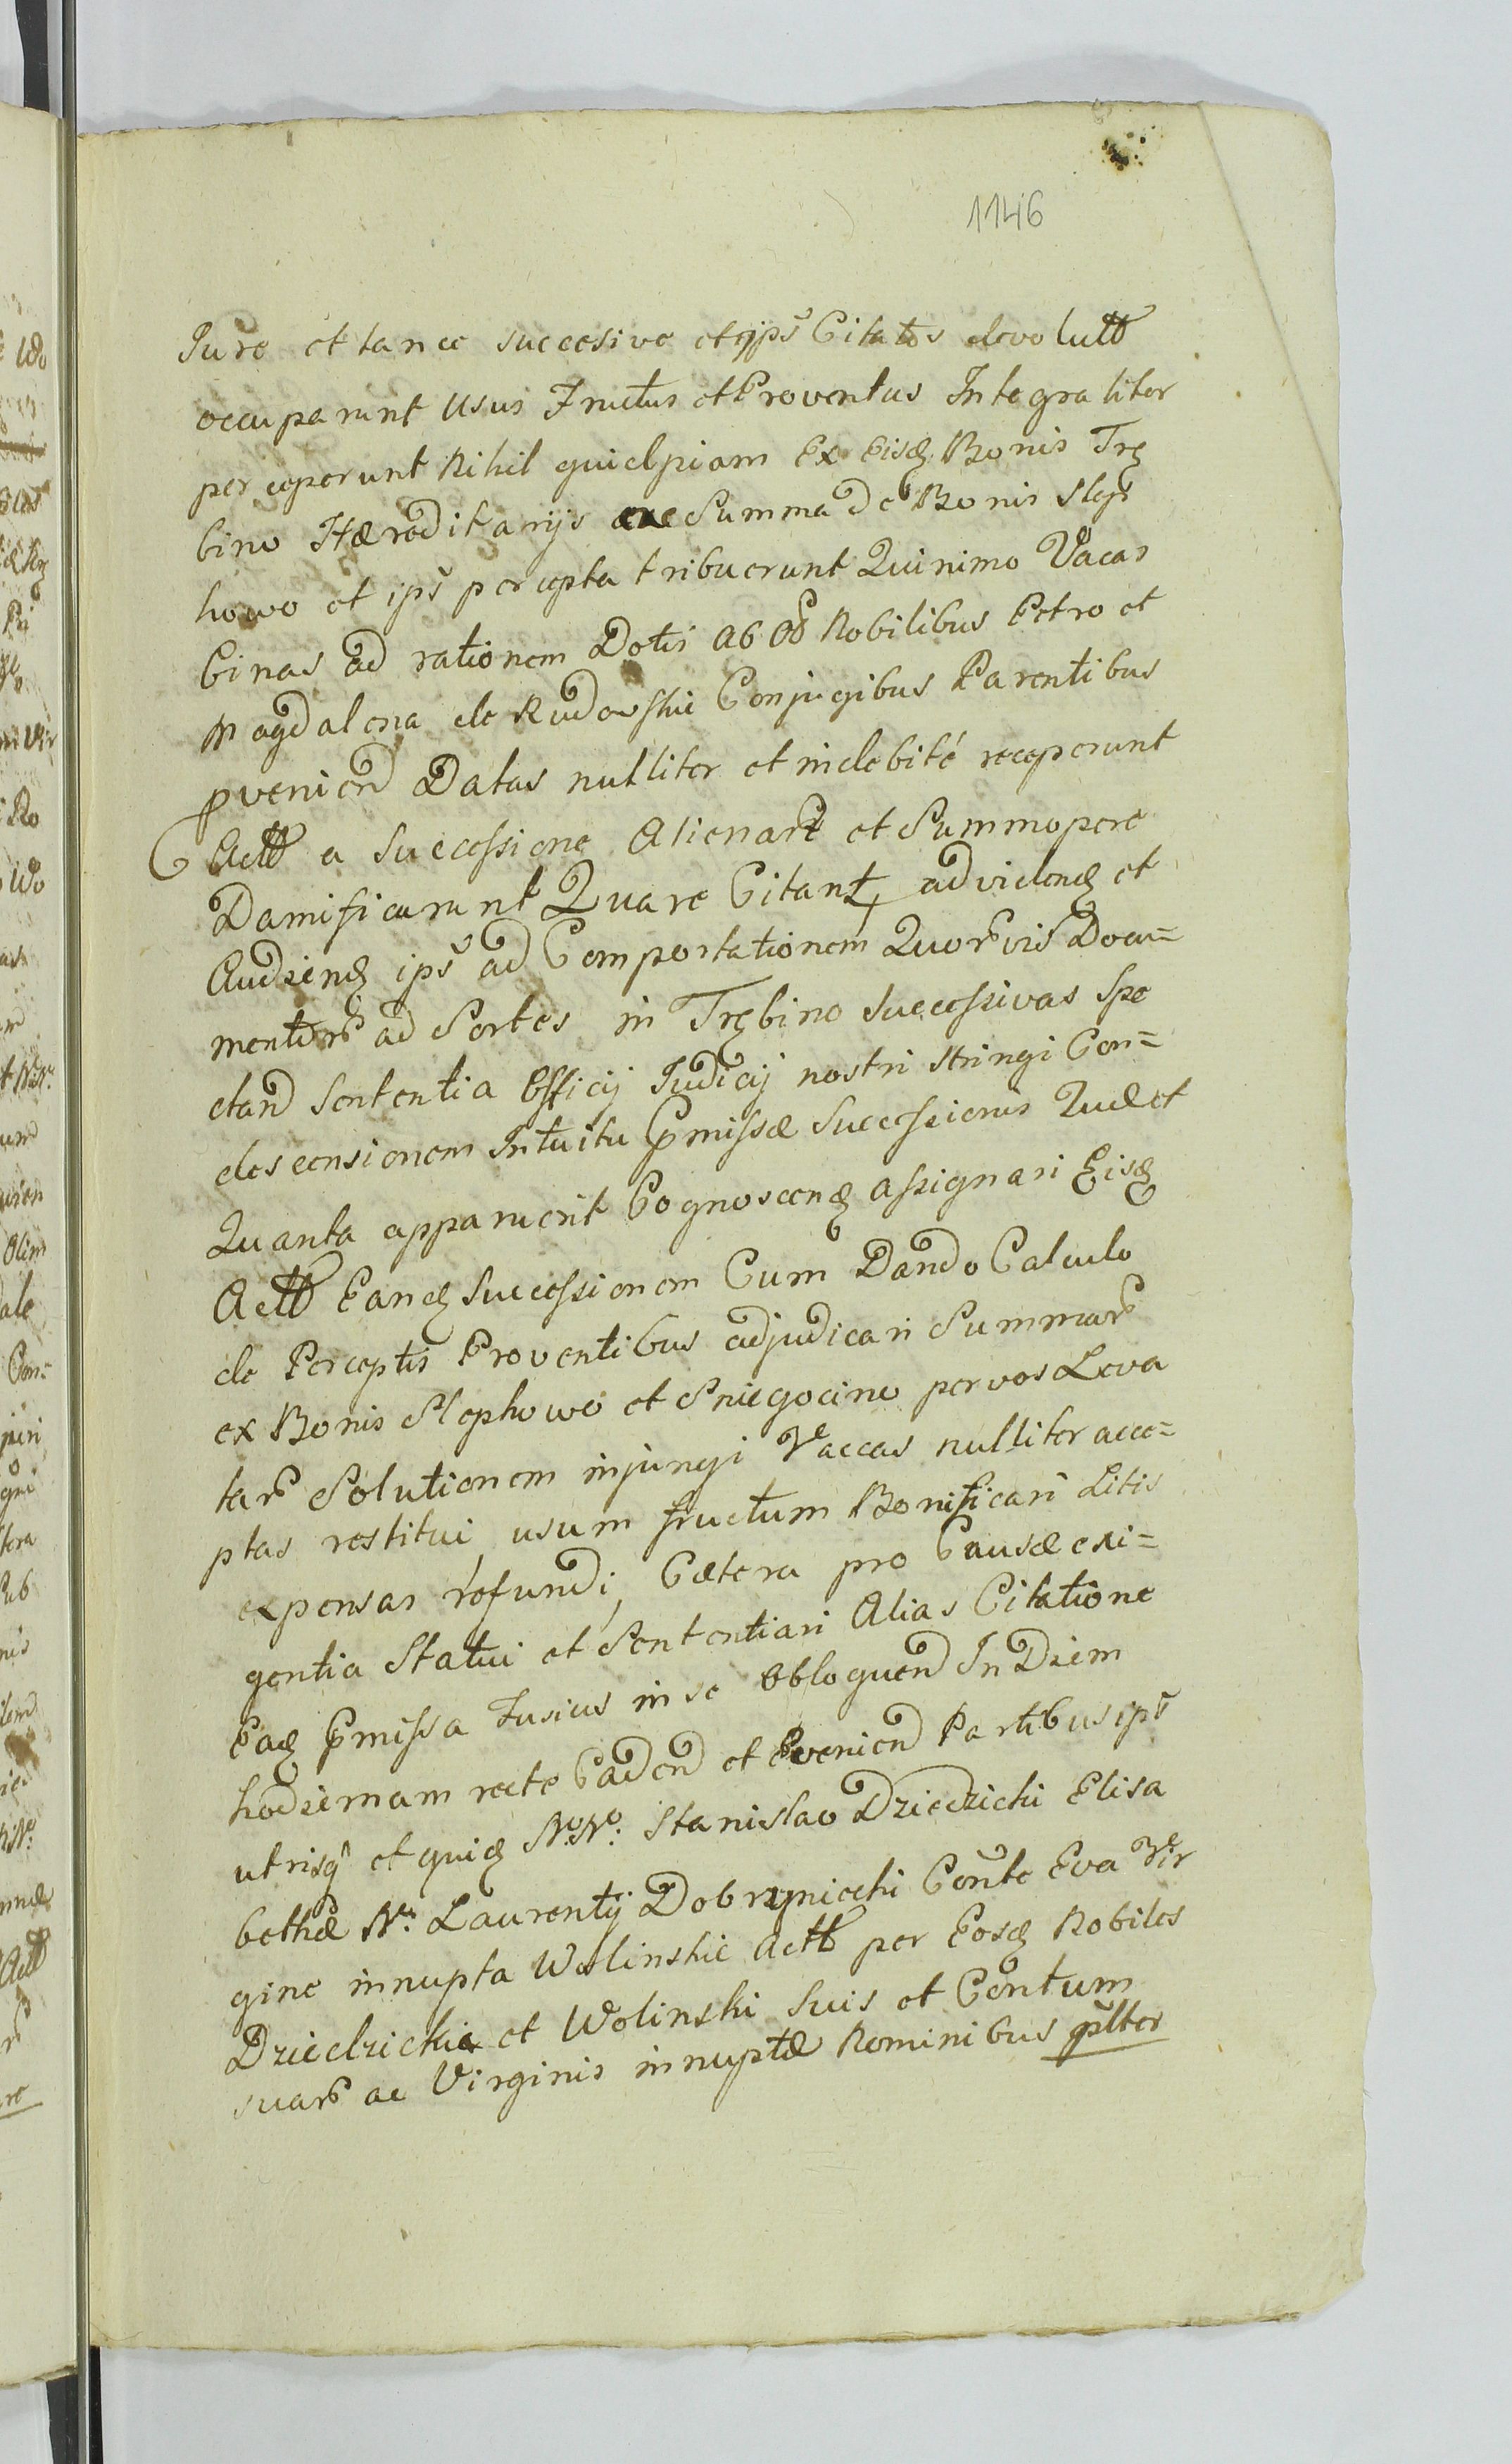 1146
Jure et tanee succesive et ips Citatos devolutt
occuparunt usus Fructus et Proventus Integraliter
perceperunt Nihil quidpiam Ex Eisdẽ Bonis Trę
bino Hæreditarijs Summa de Bonis Slep
howo et ips percepta tribuerunt Quinimo Vacas
binas ad rationem Dotis ab Nobilibus Petro et
Magdalena de Rudowskie Conjugibus Parentibus
pveniend Datas nulliter et indebité receperunt
Actt a Successione Alienart et Summopere
Damificarunt Quare Citant, ad videndẽ et
Audiendẽ ips ad Comportationem Quorvis Docu=
mentor ad Sortes in Trębino Successivas Spe
ctand Sententia Officij Judicij nostri stringi Con=
descensionem Intuitu pmissæ Successionis Quæ et
Quanta apparuerit Cognoscendẽ assignari Eisdẽ
Actt Eandẽ Successionem Cum Dando Calculo
de Perceptis Proventibus adjudicari Summar
ex Bonis Slephowo et Sniegocino per vos Leva
tar Solutionem injungi Vaccas nulliter acce=
ptas restitui usum fructum Bonificari Litis
expensas refundi, Cætera pro Causæ exi=
gentia Statui et Sententiari Alias Citatione
Eadẽ pmissa fusius in se obloquend In Diem
hodiernam recte Cadend et Pveniend Partibus ips
utrisq et quidẽ N.N. Stanislao Dziedzicki Elisa
bethæ N. Laurentij Dobrzyniecki Conte Eva Vir
gine innupta Wolinskie Actt per Eosdẽ Nobiles
Dziedzickie et Wolinski Suis et Contum
suar ac Virginis innuptæ Nominibus plter